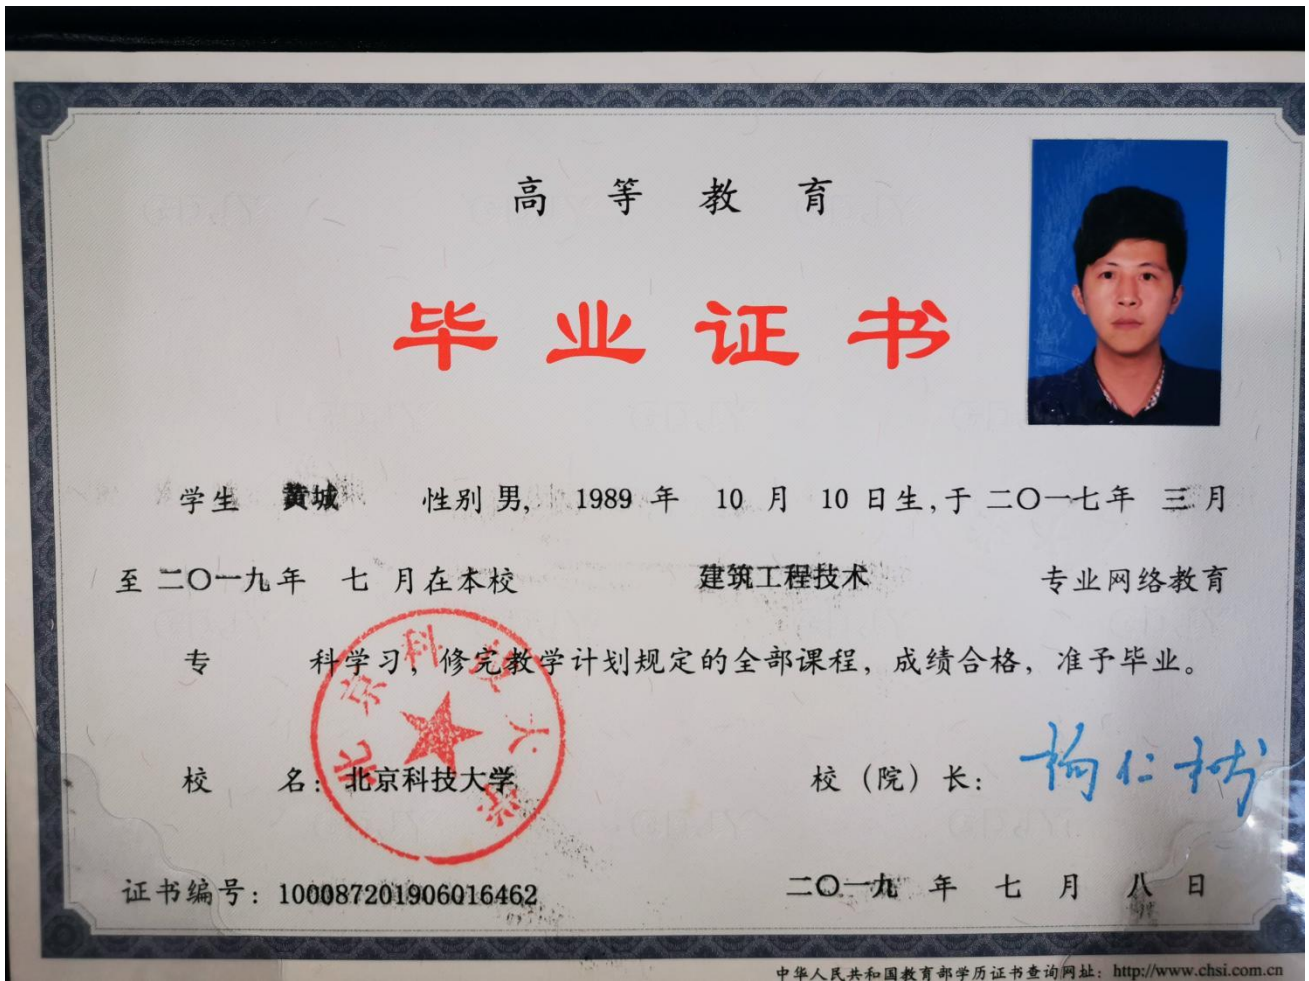 高等教育
毕业证书
学生 黄城 性别 男, 1989 年 10 月 10 日生,于 二〇一七年 三 月
至 二〇一九年 七 月在本校 建筑工程技术 专业网络教育
专 科学习,修完教学计划规定的全部课程,成绩合格,准予毕业。
北京科技大学
校 名:北京科技大学 校(院)长: 杨仁树
证书编号:100087201906016462 二〇一九 年 七 月 八 日
中华人民共和国教育部学历证书查询网址:http://www.chsi.com.cn